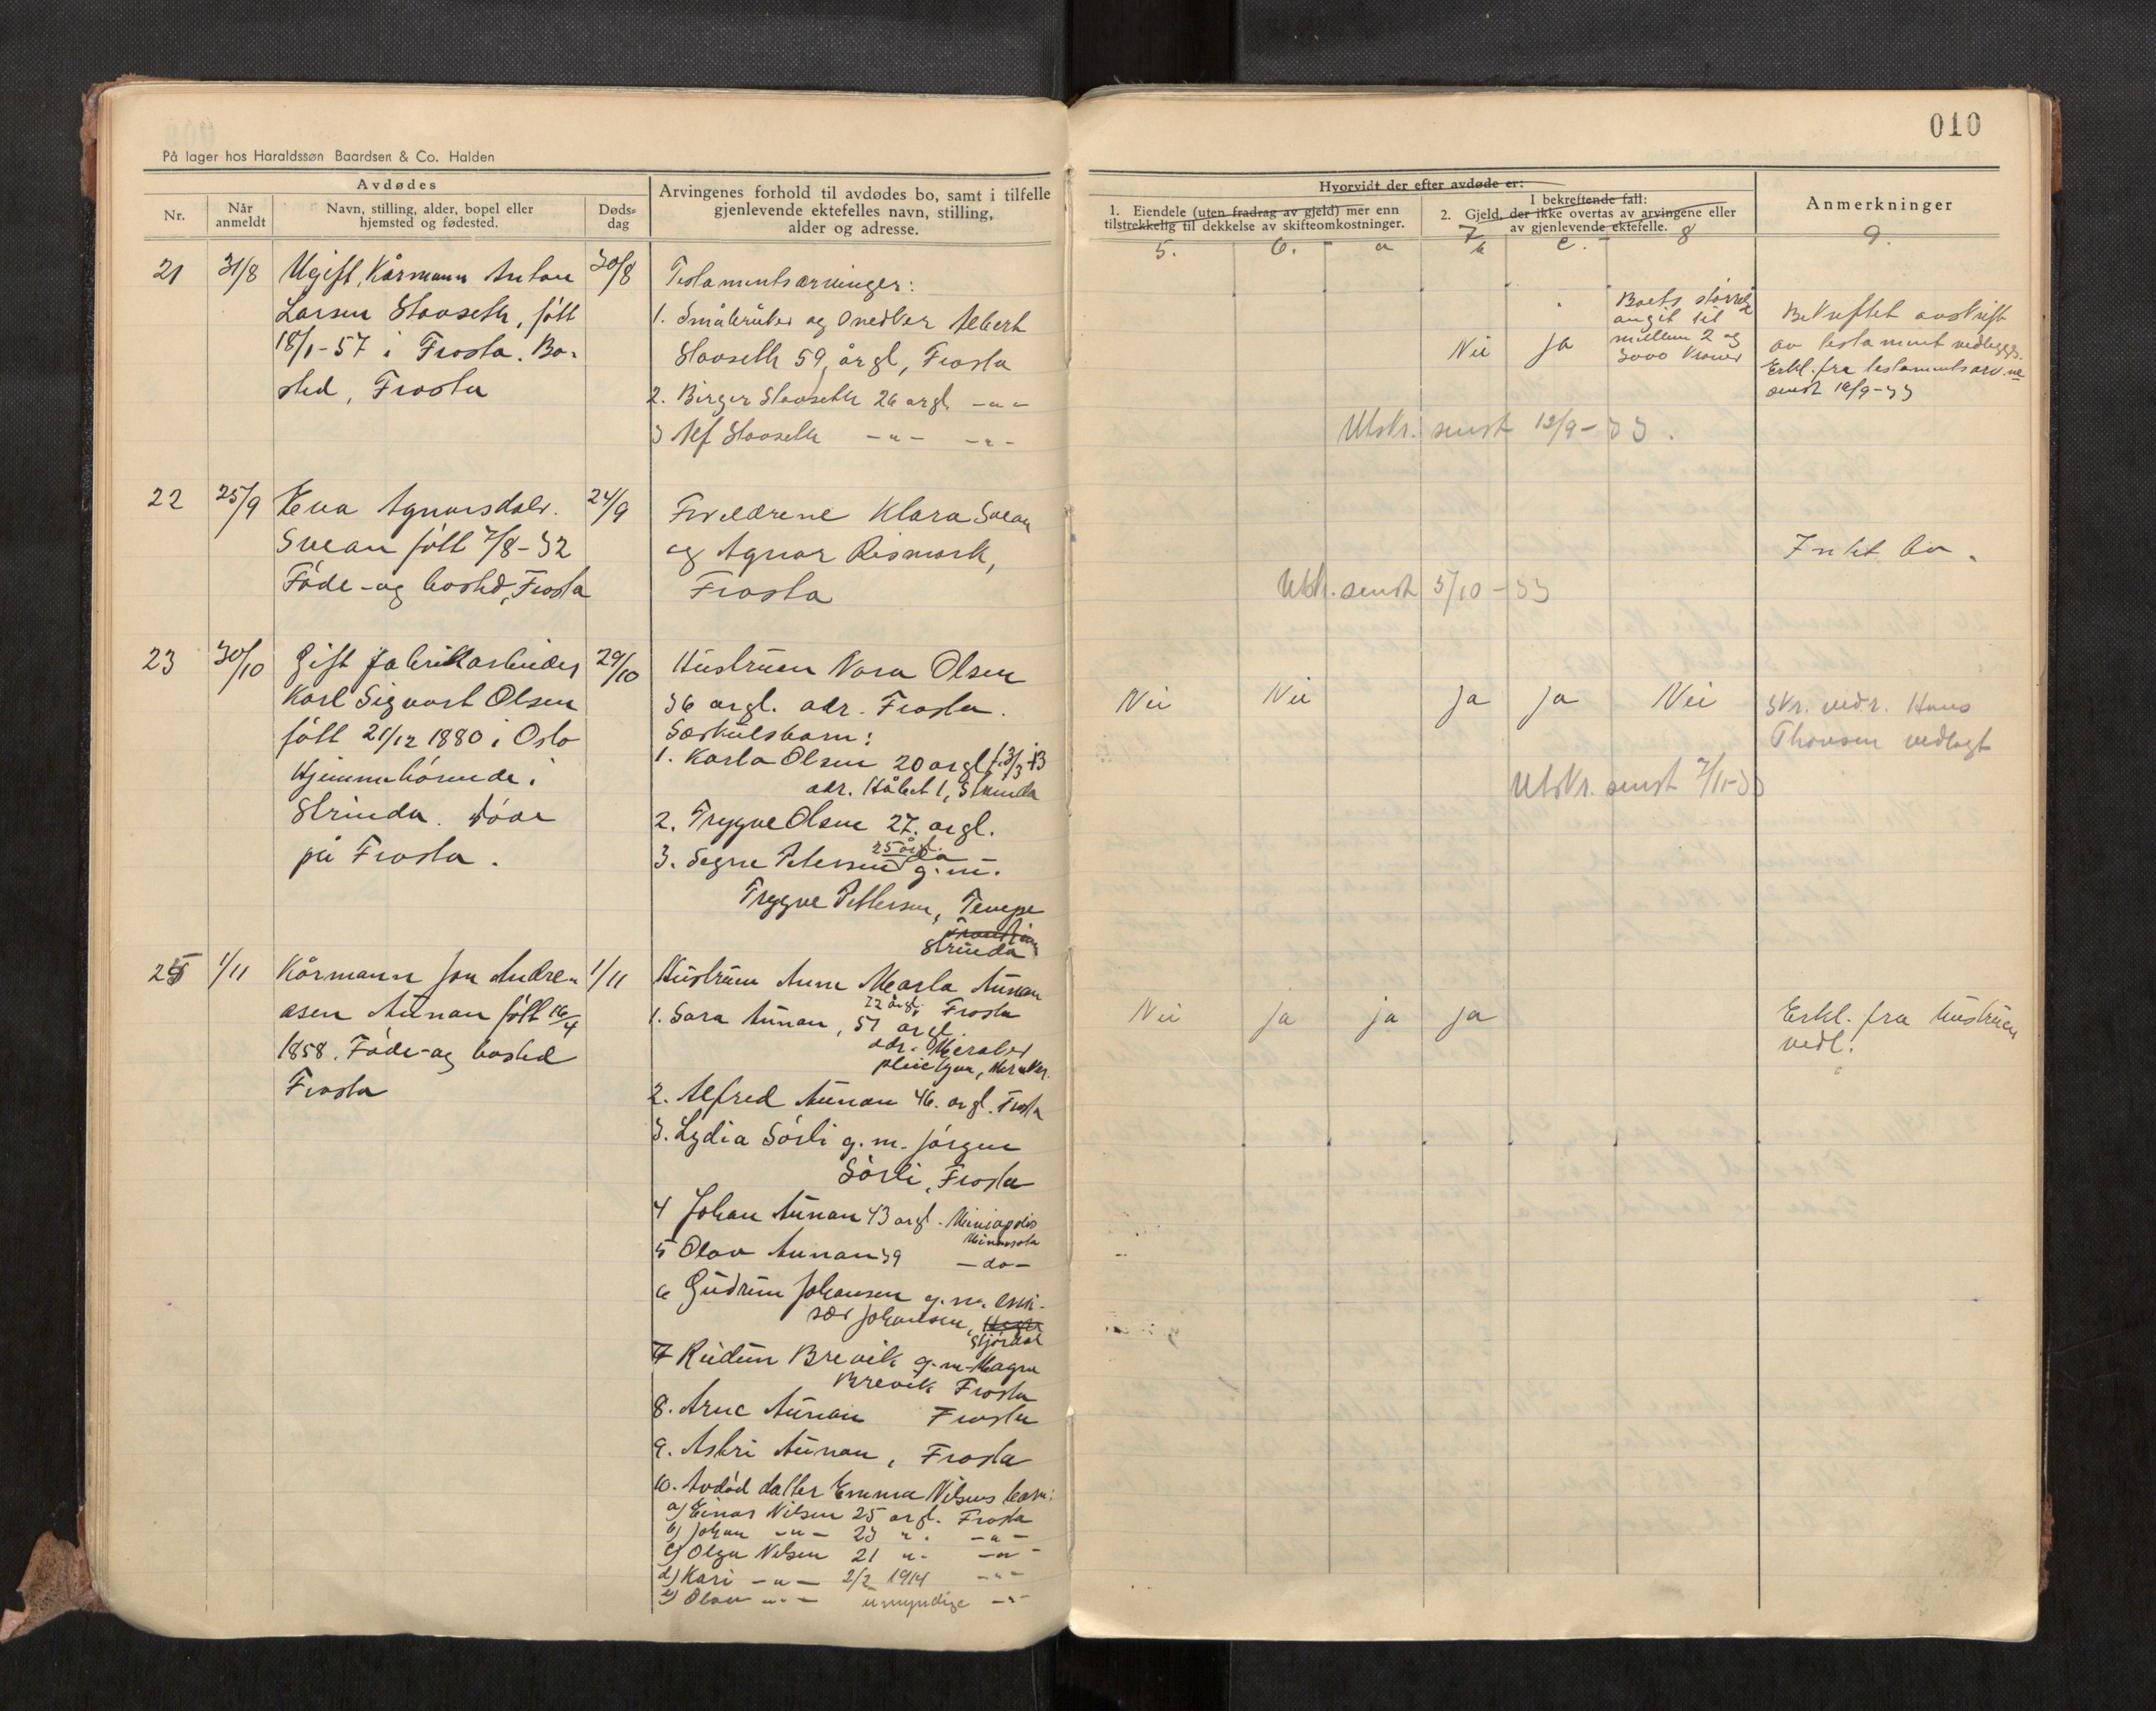 010
På lager hos Haraldssøn Baardsen & Co. Halden
Avdødes
Nr.
Når anmeldt
Navn, stilling, alder, bopel eller hjemsted og fødested.
Døds-dag
Arvingenes forhold til avdødes bo, samt i tilfelle
gjenlevende ektefelles navn, stilling,
alder og adresse.
Hvorvidt der efter avdøde er:
1. Eiendele (uten fradrag av gjeld) mer enn
tilstrekkelig til dekkelse av skifteomkostninger.
I bekreftende fall:
2. Gjeld, der ikke overtas av arvingene eller
av gjenlevende ektefelle.
Anmerkninger
5. 6. a 7 b c. 8 9.
21 31/8 Ugift, Kårmann Anton 30/8
Larsen Stavseth, född
18/1-57 i Frosta. Bo-
sted, Frosta
Testamentsarvinger:
1. Småbruker og snedker Albert
Stavseth 59 årgl, Frosta
2. Birger Stavseth 26 årgl. -"-
3 Alf Stavseth -"- -"-
Nei ja
Boets størrelse
angit til
mellem 2 og
3000 kroner
Bekreftet avskrift
av testament vedlegges.
Erkl. fra testamentsarv.ne
sendt 12/9-33
Utskr. sendt 12/9-33.
22 25/9 Eva Agnarsdatr. 24/9
Svean født 7/8-32
Føde- og bosted, Frosta
Foreldrene Klara Svean
og Agnar Rismark,
Frosta
Intet bo.
Utskr. sendt 5/10-33
23 30/10 Gift fabrikkarbeider 29/10
Karl Sigvart Olsen
født 21/12 1880 i Oslo
Hjemmehörende i
Strinda. Döde
på Frosta.
Hustruen Nora Olsen
36 årgl. adr. Frosta.
Særkulsbarn:
1. Karla Olsen 20 årgl f. 3/3-13
adr. Håbet 1, Strinda
2. Trygve Olsen 27. årgl.
3. Signe Petersen 25 årgl. g.m.
Trygve Pettersen, Tempe
Strinda
Nei Nei ja ja Nei
Skr. vedr. Hans
Thonsen vedlagt
Utskr. sendt 7/11-33
25 1/11 Kårmann Jon Andre- 1/11
asen Aunan født 16/4
1858. Föde- og bosted
Frosta
Hustruen Anne Marta Aunan
72 årgl. Frosta
1. Sara Aunan, 51 årgl.
adr. Meråker
pleiehjem, Meråker.
2. Alfred Aunan 46. årgl. Frosta
3. Lydia Sörli g.m. Jörgen
Sörli, Frosta
4 Johan Aunan 43 årgl. Miniapolis
Minnesota
5 Olav Aunan 39 -do-
6 Gudrun Johansen g.m. emi-
sær Johansen,
Stjördal
7 Reidun Brevik g.m. Magne
Brevik Frosta
8. Arne Aunan Frosta
9. Astri Aunan, Frosta
10. Avdöd datter Emma Nilsens barn:
a) Einar Nilsen 25 årgl. Frosta
b) Johan -"- 23 ". -"-
c) Olga Nilsen 21 "- -"-
d) Kari -"- 2/2 1914 -"-
e) Olav -"- umyndige -"-
Nei ja ja ja
Erkl. fra hustruen
vedl.